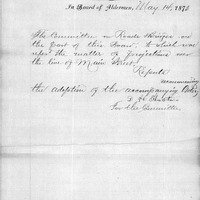 In Board of Aldermen, May 14, 187
The Committee on Roads & Bridges on
the part of this Board, to which was
refer the matter of projections over
the line of Main Street,
Report
recommending
the adoption of the accompanying Order
For the Committee